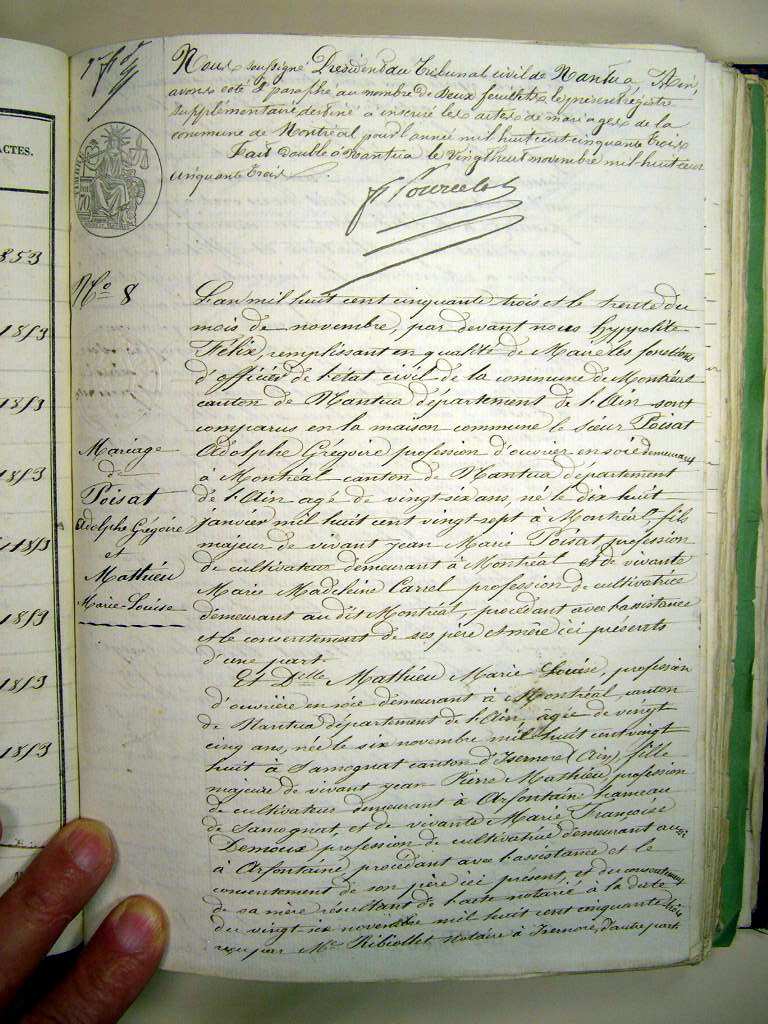 ACTES.
1853
1853
1853
1853
1853
1853
1853
1853
Nous soussigné Président du Tribunal civil de Nantua, Ain,
avons coté & paraphé au nombre de deux feuillets le présent régistre
supplémentaire destiné à inscrire les actes de mariages de la
commune de Montréal pour l'année mil huit cent cinquante trois
Fait double à Nantua le vingt huit novembre mil huit cent
cinquante trois
No 8
Mariage
de
Poisat
Adolphe Grégoire
et
Mathieu
Marie-Louise
L'an mil huit cent cinquante trois et le trente du
mois de novembre, par devant nous hyppolite
Félix, remplissant en qualité de Maire les fonctions
d'officier de l'état civil de la commune de Montréal
canton de Nantua département de l'Ain sont
comparus en la maison commune le sieur Poisat
Adolphe Grégoire profession d'ouvrier en soie demeurant
à Montréal canton de Nantua département
de l'Ain agé de vingt-six ans, né le dix huit
janvier mil huit cent vingt sept à Montréal fils
majeur de vivant jean Marie Poisat profession
de cultivateur demeurant à Montréal et de vivante
Marie Madeleine Carrel profession de cultivatrice
demeurant au dit Montréal, procédant avec l'assistance
et le consentement de ses père et mère ici présents
d'une part.
Et Delle Mathieu Marie Louise, profession
d'ouvrière en soie demeurant à Montréal canton
de Nantua département de l'Ain, agée de vingt
cinq ans, née le six novembre mil huit cent vingt
huit à Samognat canton d'Isernore (Ain) fille
majeure de vivant jean Pierre Mathieu, profession
de cultivateur demeurant à Arfontaine hameau
de Samognat, et de vivante Marie Françoise
Demoux profession de cultivatrice demeurant aussi
à Arfontaine, procédant avec l'assistance et le
consentement de son père ici présent, et du consentement
de sa mère résultant de l'acte notarié à la date
du vingt six novembre mil huit cent cinquante trois
reçu par Me Ribiollet notaire à Isernore, d'autre part